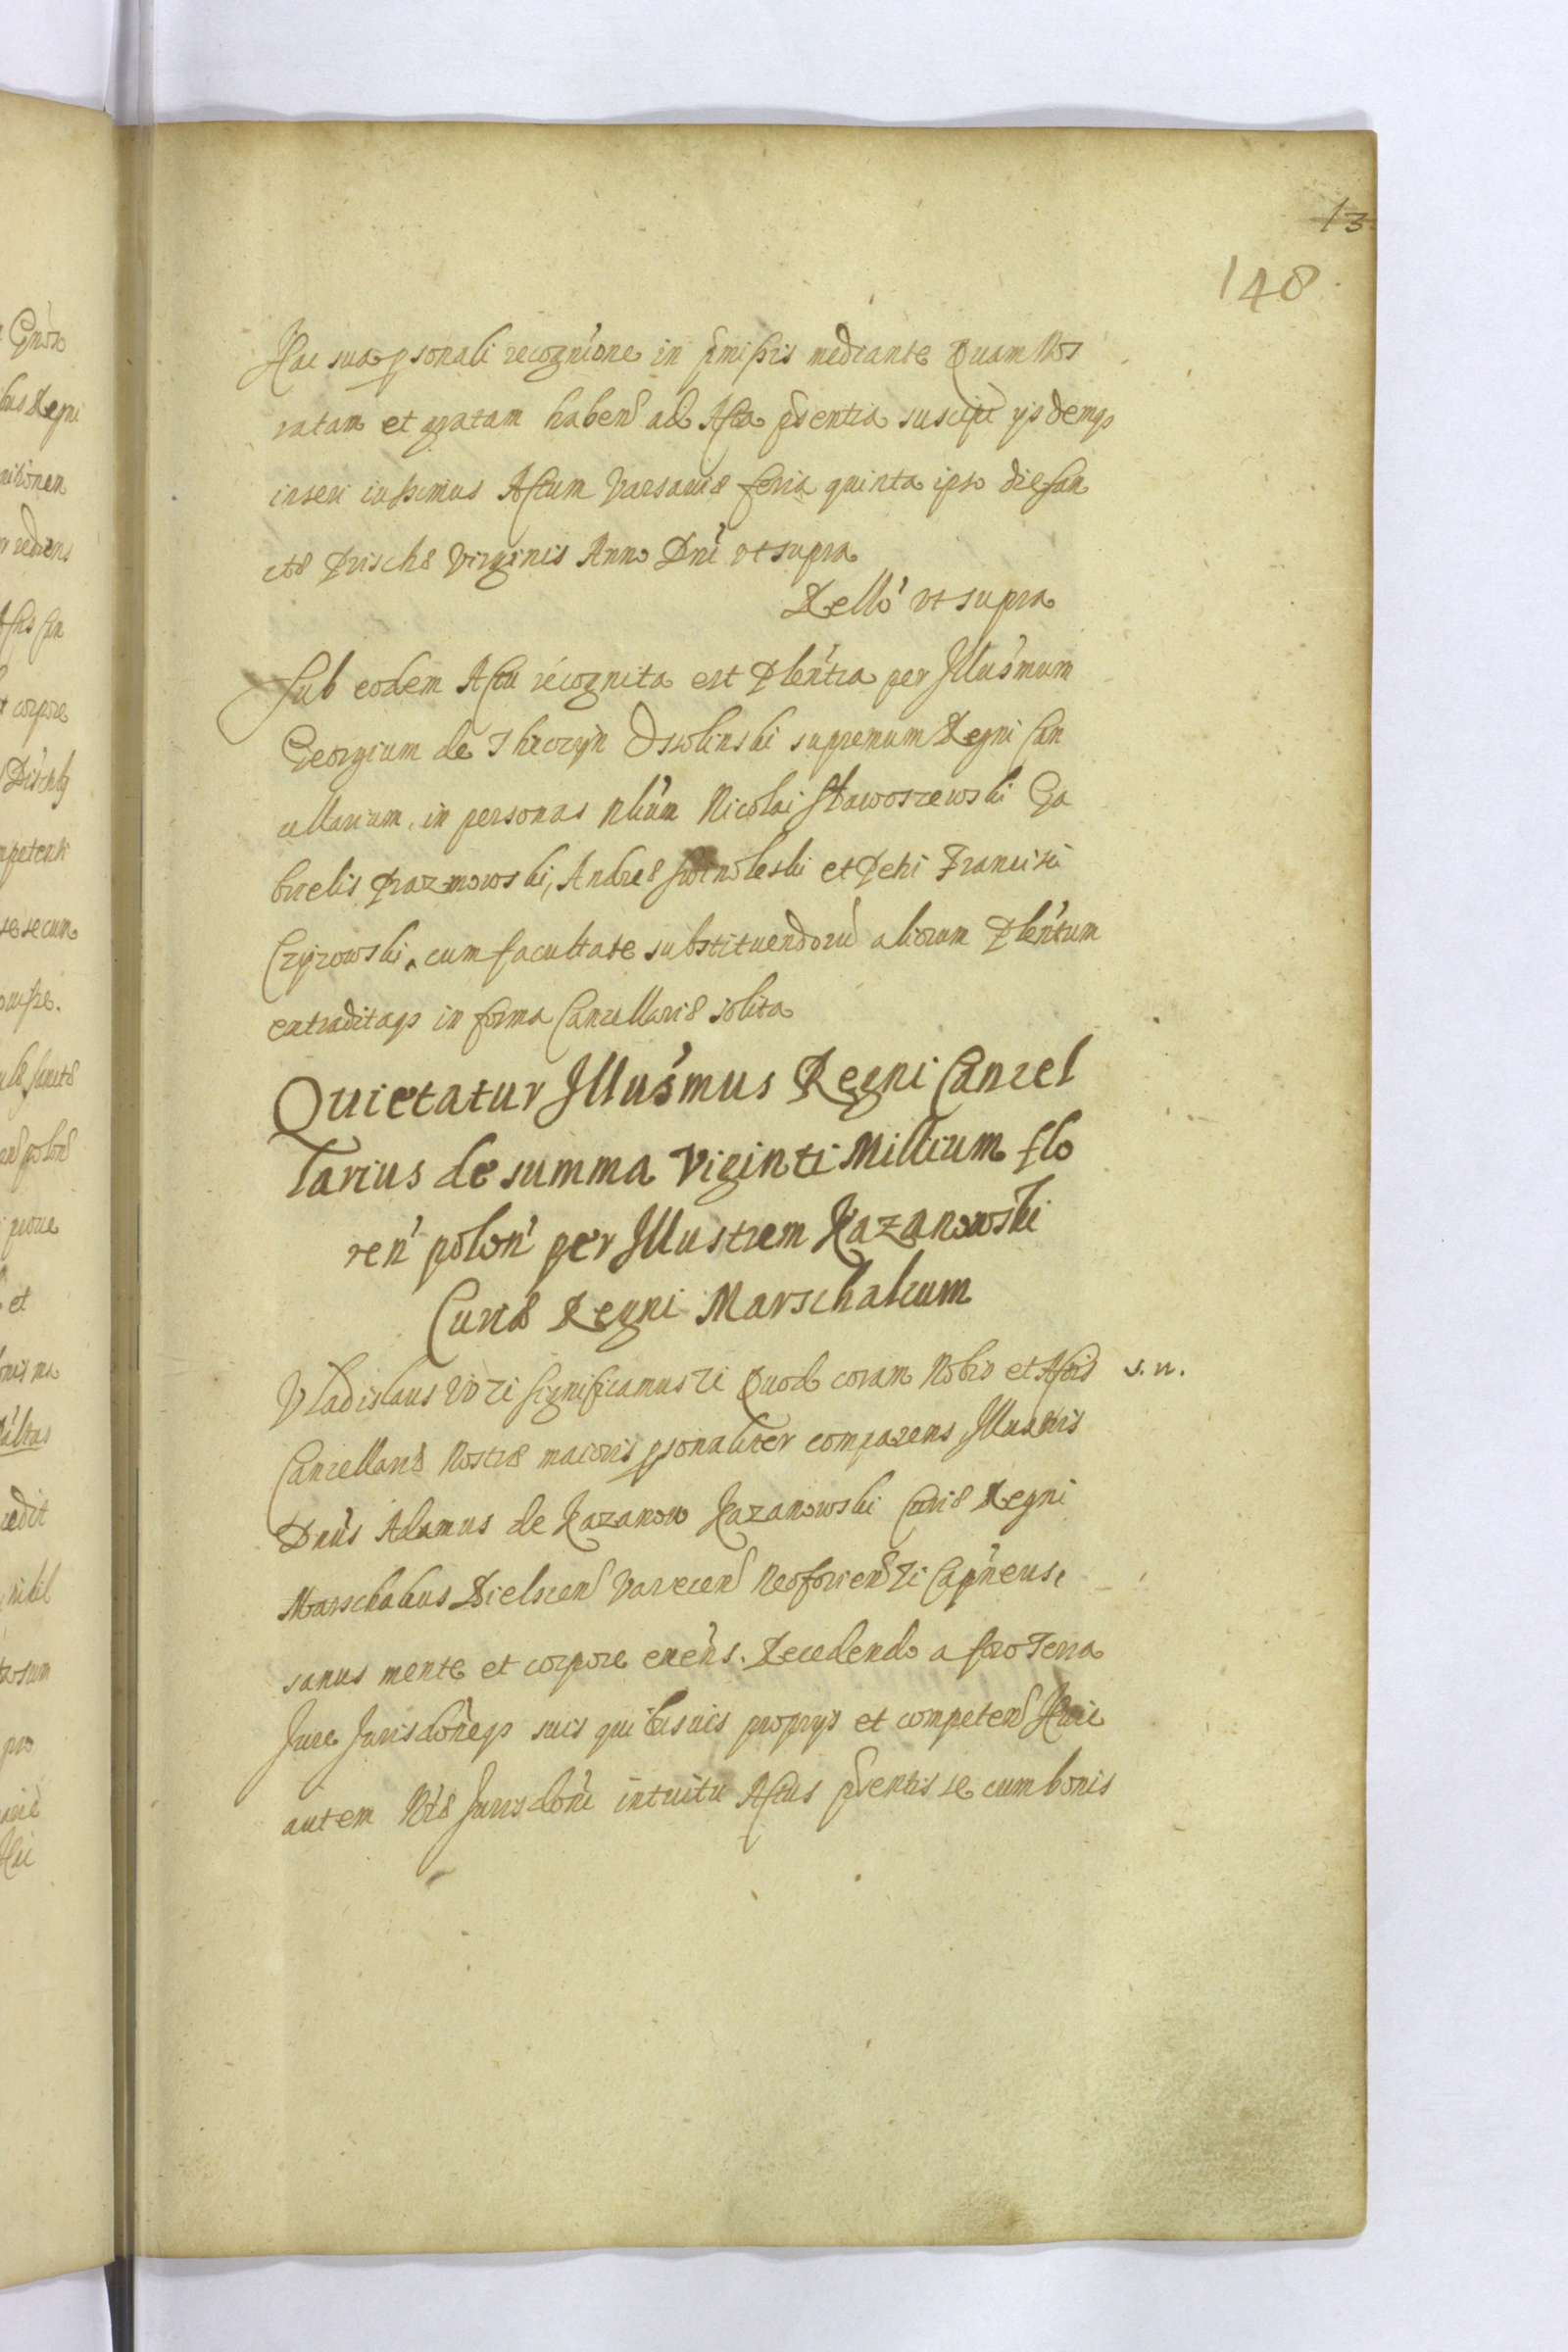 13
148
Hac sua psonali recogn̄ione in pmissis mediante Quam Nos
ratam et gratam haben̄ ad Acta psentia suscipi ysdemq3
inseri iussimus Actum Varsaviæ feria quinta ipso die San
ctæ Priscæ Virginis Anno Dn̄i vt supra
Rello' vt supra
Sub eodem Actu recognita est Plen̄tia per Illus̄mum
Georgium de Thęczyn Ossolinski supremum Regni Can
cellarium, in personas Nbiūm Nicolai Stawoszewski Ga
brielis Prazmowski, Andreæ et Petri Francisci
Czyzowski, cum facultate substituendorū aliorum Plen̄tum
extraditaq3 in forma Cancellariæ solita
Quietatur Illus̄mus Regni Cancel
larius de summa Viginti Millium flo
ren̄ polon̄ per Illustrem Kazanowski
Curiæ Regni Marschalcum
Vladislaus IV etc Significamus etc Quod coram Nobis et Actis s. n.
Cancellariæ Nostræ maioris psonaliter comparens Illustris
Dn̄us Adamus de Kazanow Kazanowski Curiæ Regni
Marschalcus Bielscen̄ Varecen̄ Neoforien̄ etc Cap̄neus,
sanus mente et corpore exēns. Recedendo a foro Terra
Jure Jurisdōneq3 suis quibusvis proprys et competen̄ Huic
autem Nr̄æ Jurisdōni intuitu Actus psentis se cum bonis